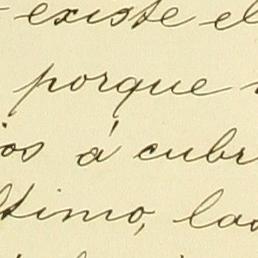 existe el
porque
ios á cubr
ltimo, las